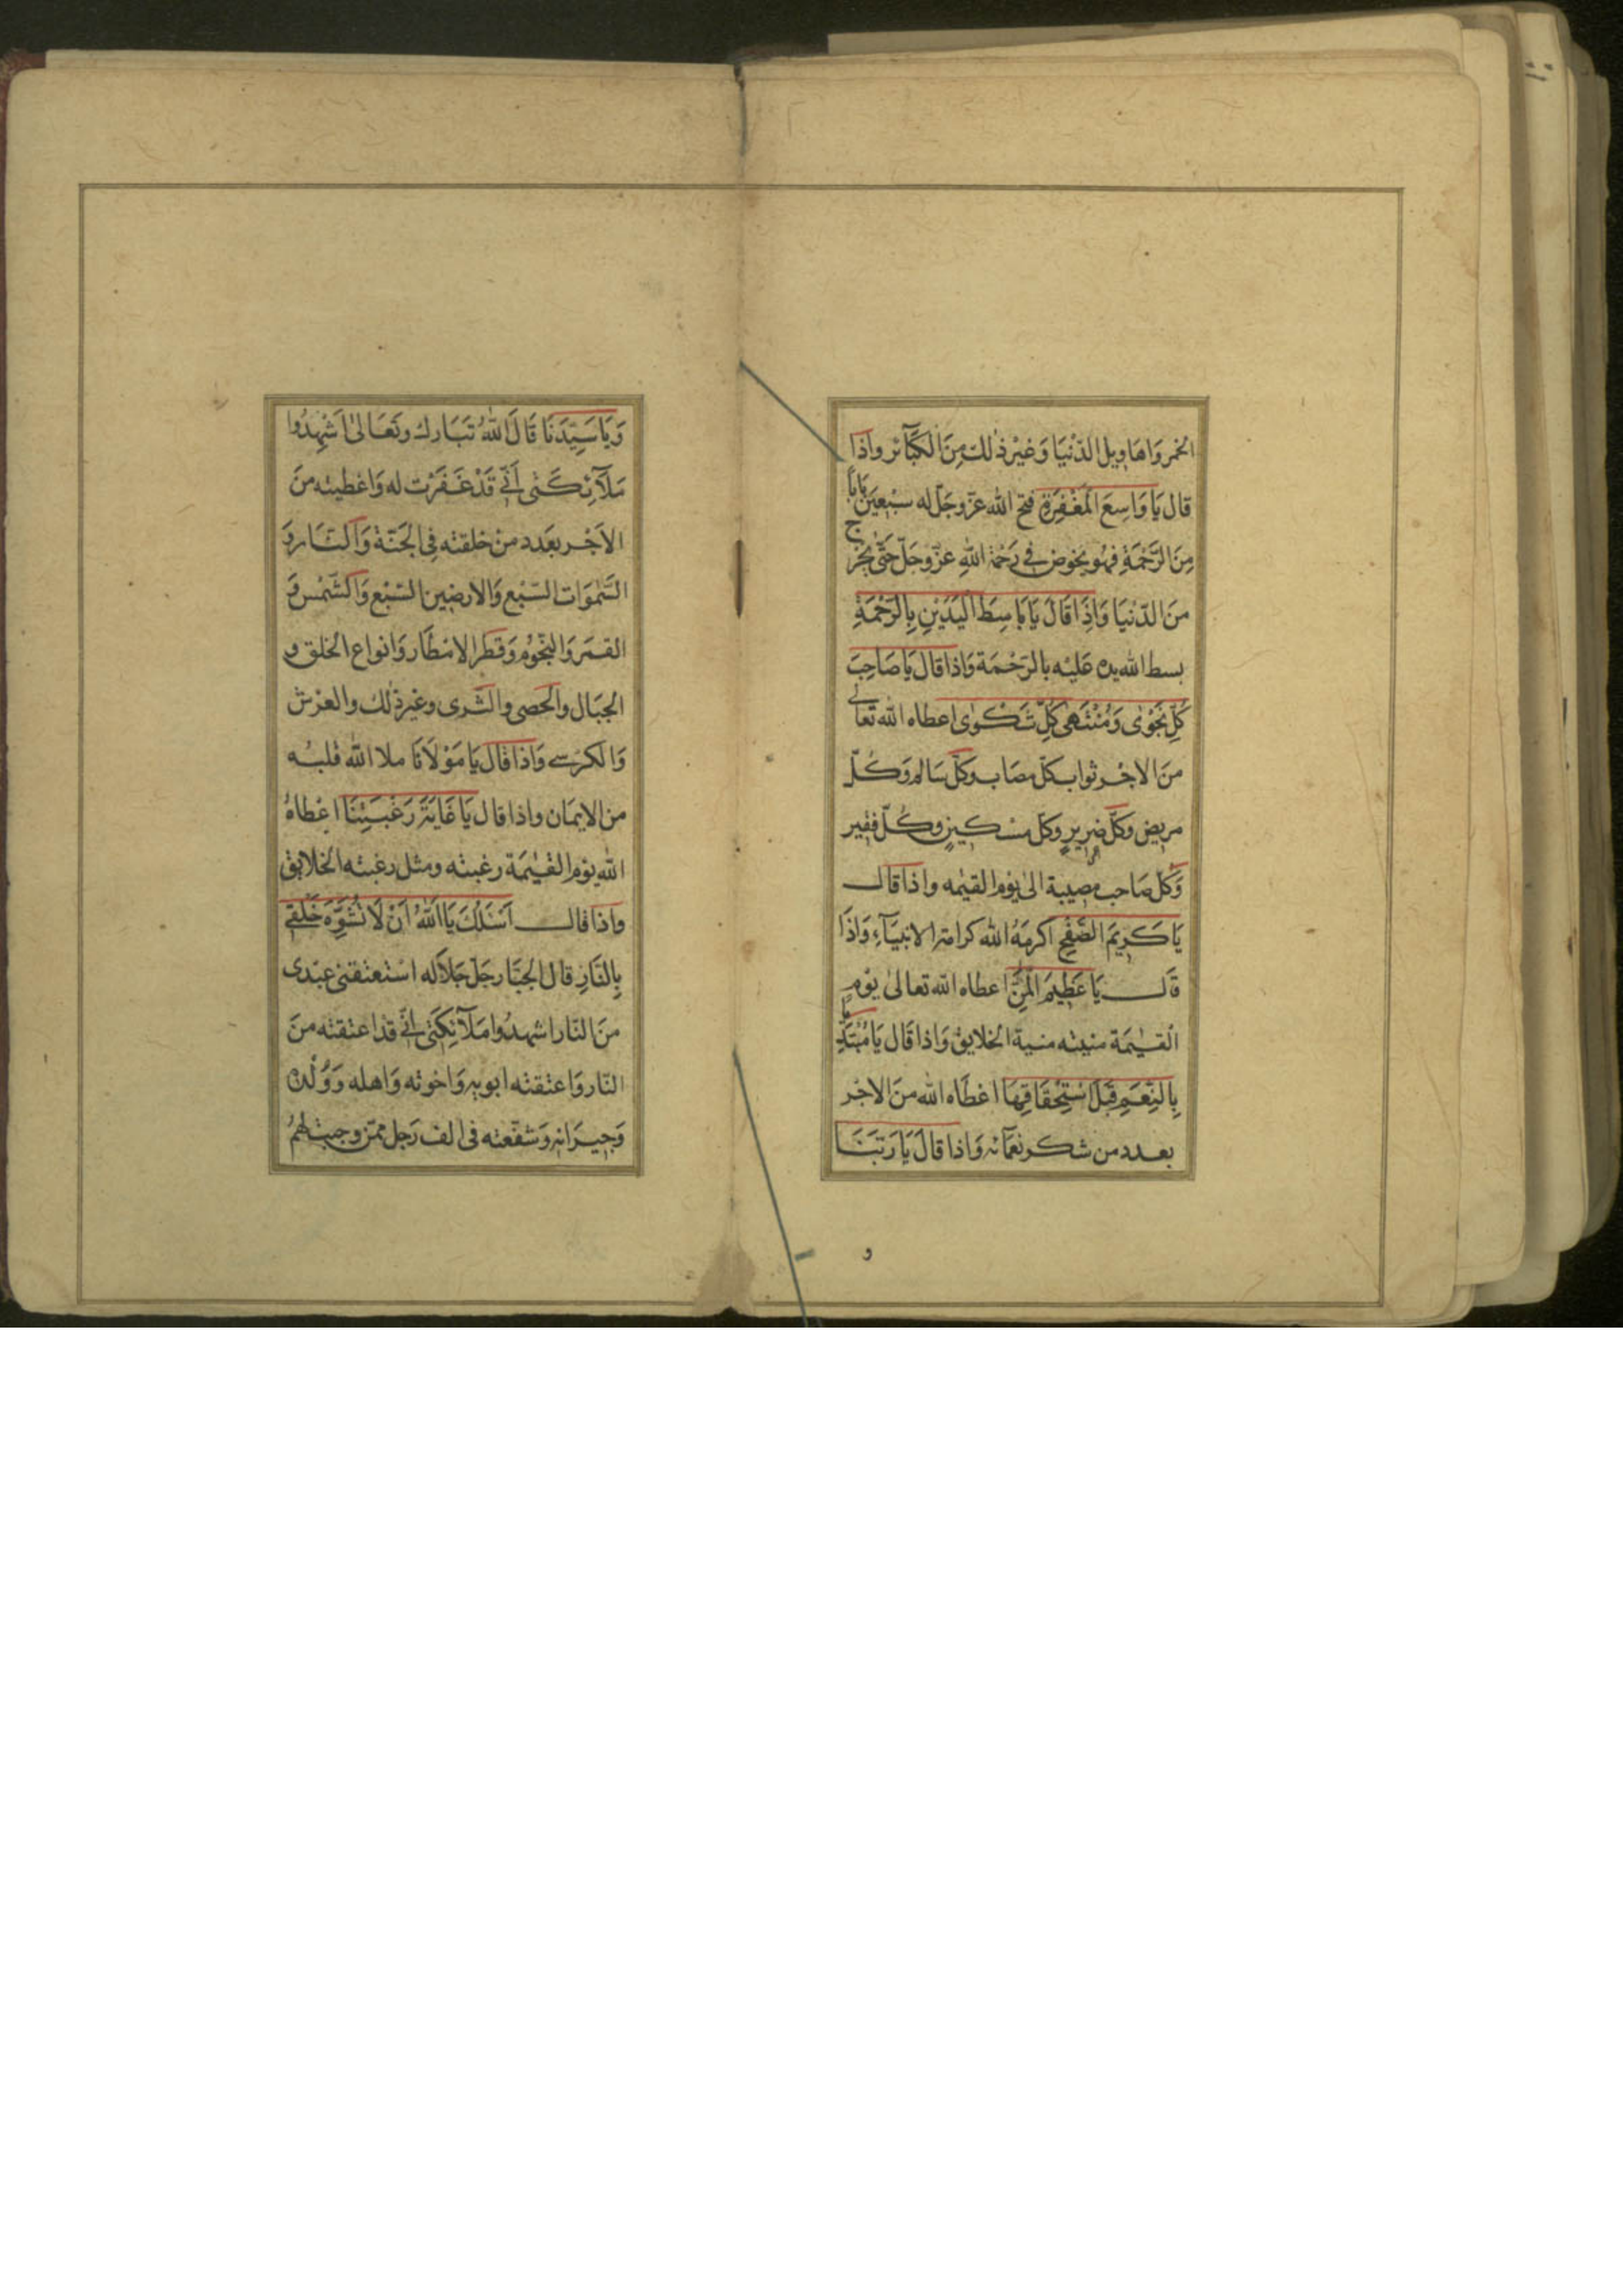 الخمر وَاهَاوِيل الدّنْيَا وَغيْر ذٰلك مِنَ الكَبَآئر واذَا
قال يَا وَاسِعَ المَغْفِرَةِ فتح الله عزّوجَلّ له سبْعِيَن بَابًا
مِنَ الرَّحْمَةِ فهُو يخوض فى رَحْمَة اللهِ عَزّوجَلّ حَتّى يخرج
منَ الدّنْيَا وَاِذَا قَالَ يَا بَاسِطَ اليَدَيْنِ بِالرَحْمَةِ
بسط الله يده عَليْه بالرَحْمَة وَاذا قال يَا صَاحِبَ
كُلِّ نَجْوٰى وَمُنْتَهٰى كلِّ شَكْوٰى اعطاه الله تعالى
منَ الاجْر ثواب كلّ مصَاب وكلّ سَالم وَكُلّ
مريض وكلّ ضرِيرٍ وكل مسْكينٍ وكُلّ فقير
وَكل صَاحب مصيبة الىٰ يوْم القيٰمه واذا قال
يَا كَرِيمَ الصَّفْحِ اكرمَهُ الله كرامة الانبيَآءِ وَاذَا
قَال يَا عَظِيمَ المَنِّ اعطاه الله تعالىٰ يوْم
القيٰمَة منيته منية الخلايق وَاذا قَال يَا مُبْتَدِئًا
بِالنِّعَمِ قَبْلَ اسْتِحْقَاقِهَا اعْطَاه الله منَ الاجْر
بعدد من شكر نعمَآئه وَاذا قالَ يَا رَبَّنَا
و
وَيَا سَيِّدَنَا قَالَ اللهُ تَبَارك وتَعَالىٰ اشْهِدُوا
مَلَآئِكَتى اَنّى قَدْ غَفَرْت له وَاعْطيته منَ
الاَجْر بعَدد منْ خلقته فى الجَنّة وَالنّار وَ
السَّمٰوَات السّبْع وَالارضِين السّبْع وَالشّمْس وَ
القمَر وَالنجُّوُم وَقطر الامْطَار وَانواع الخلق و
الجبَال والحَصى والثّرى وغيرذٰلك والعرْش
وَالكرْسى وَاذا قال يَا مَوْلَانَا ملا الله قلبُه
من الايمَان واذا قال يَا غَايَةَ رَغْبَتِنَا اعْطاهُ
الله يوْم القيٰمَة رغبته ومثل رغبته الخلايق
واذا قال اَسْئَلُكَ يَا اَللهُ اَنْ لَا تُشَوِّهَ خَلْقى
بِالنّارِ قال الجبّار جَلّ جَلَاله اسْتعْتقنى عبْدى
منَ النّار اشهدُوا مَلآئِكَتى انّى قدْ اعتقته منَ
النّار وَاعتقته ابويه وَاخوته وَاهله وَوُلْده
وَجيَرانه وَشفّعته فى الف رَجل ممّن وجبت لهمُ